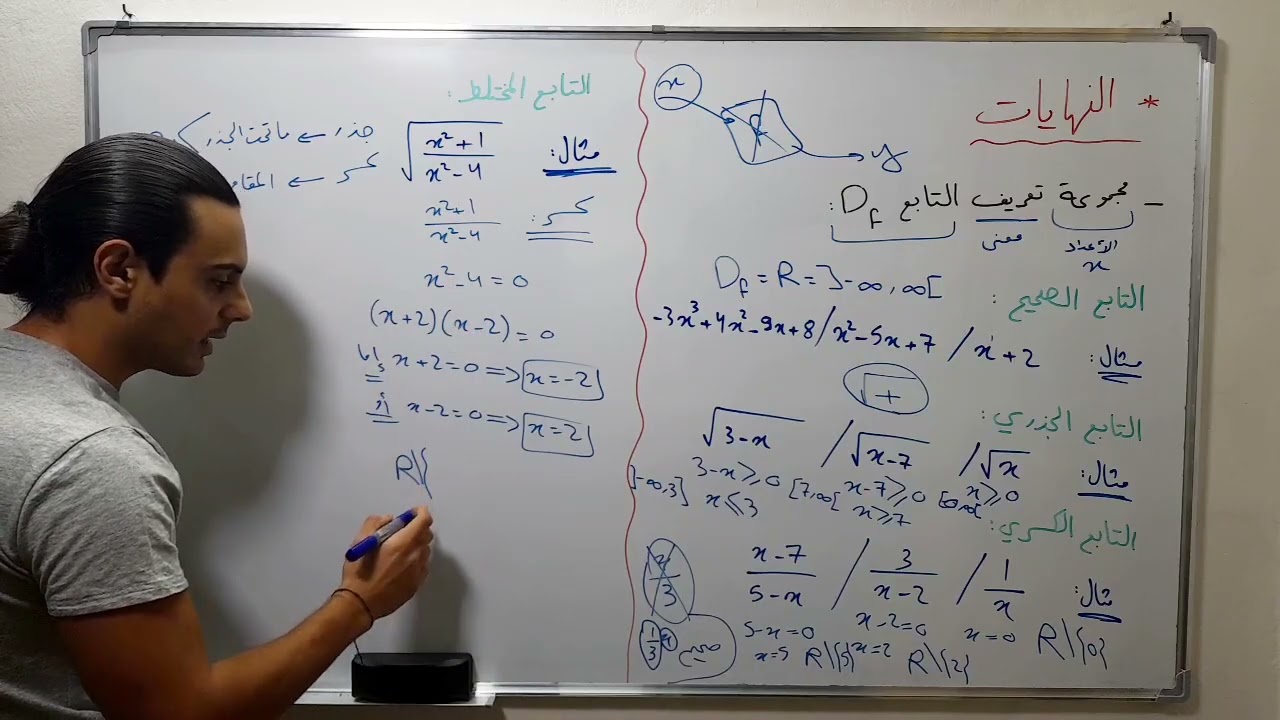 * النهايات
x
y
- مجموعة تعريف التابع D_f :
الأعداد x
معنى
التابع الصحيح :
D_f = R = ]-∞, ∞[
مثال: x + 2 / x² - 5x + 7 / -3x³ + 4x² - 9x + 8
+
التابع الجذري :
مثال: √x / √x-7 / √3-x
x ≥ 0
x-7 ≥ 0 [7, ∞[
x ≥ 7
3-x ≥ 0 ]-∞, 3]
x ≤ 3
التابع الكسري :
مثال: 1/x / 3/(x-2) / (x-7)/(5-x)
x = 0 R\{0}
x-2=0
x=2 R\{2}
5-x=0
x=5 R\{5}
1/3 x صحيح
التابع المختلط :
مثال: √((x²+1)/(x²-4))
جذر → ما تحت الجذر
كسر → المقا
كسر: (x²+1)/(x²-4)
x²-4 = 0
(x+2)(x-2) = 0
إما x+2=0 => x=-2
أو x-2=0 => x=2
R\{